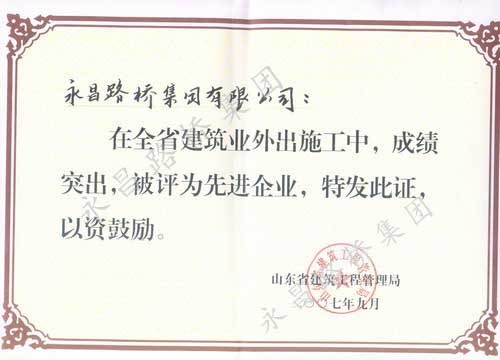 永昌路桥集团有限公司：
在全省建筑业外出施工中，成绩
突出，被评为先进企业，特发此证，
以资鼓励。
山东省建筑工程管理局
〇七年九月
永昌路桥集团
永昌路桥集团
永昌路桥集团